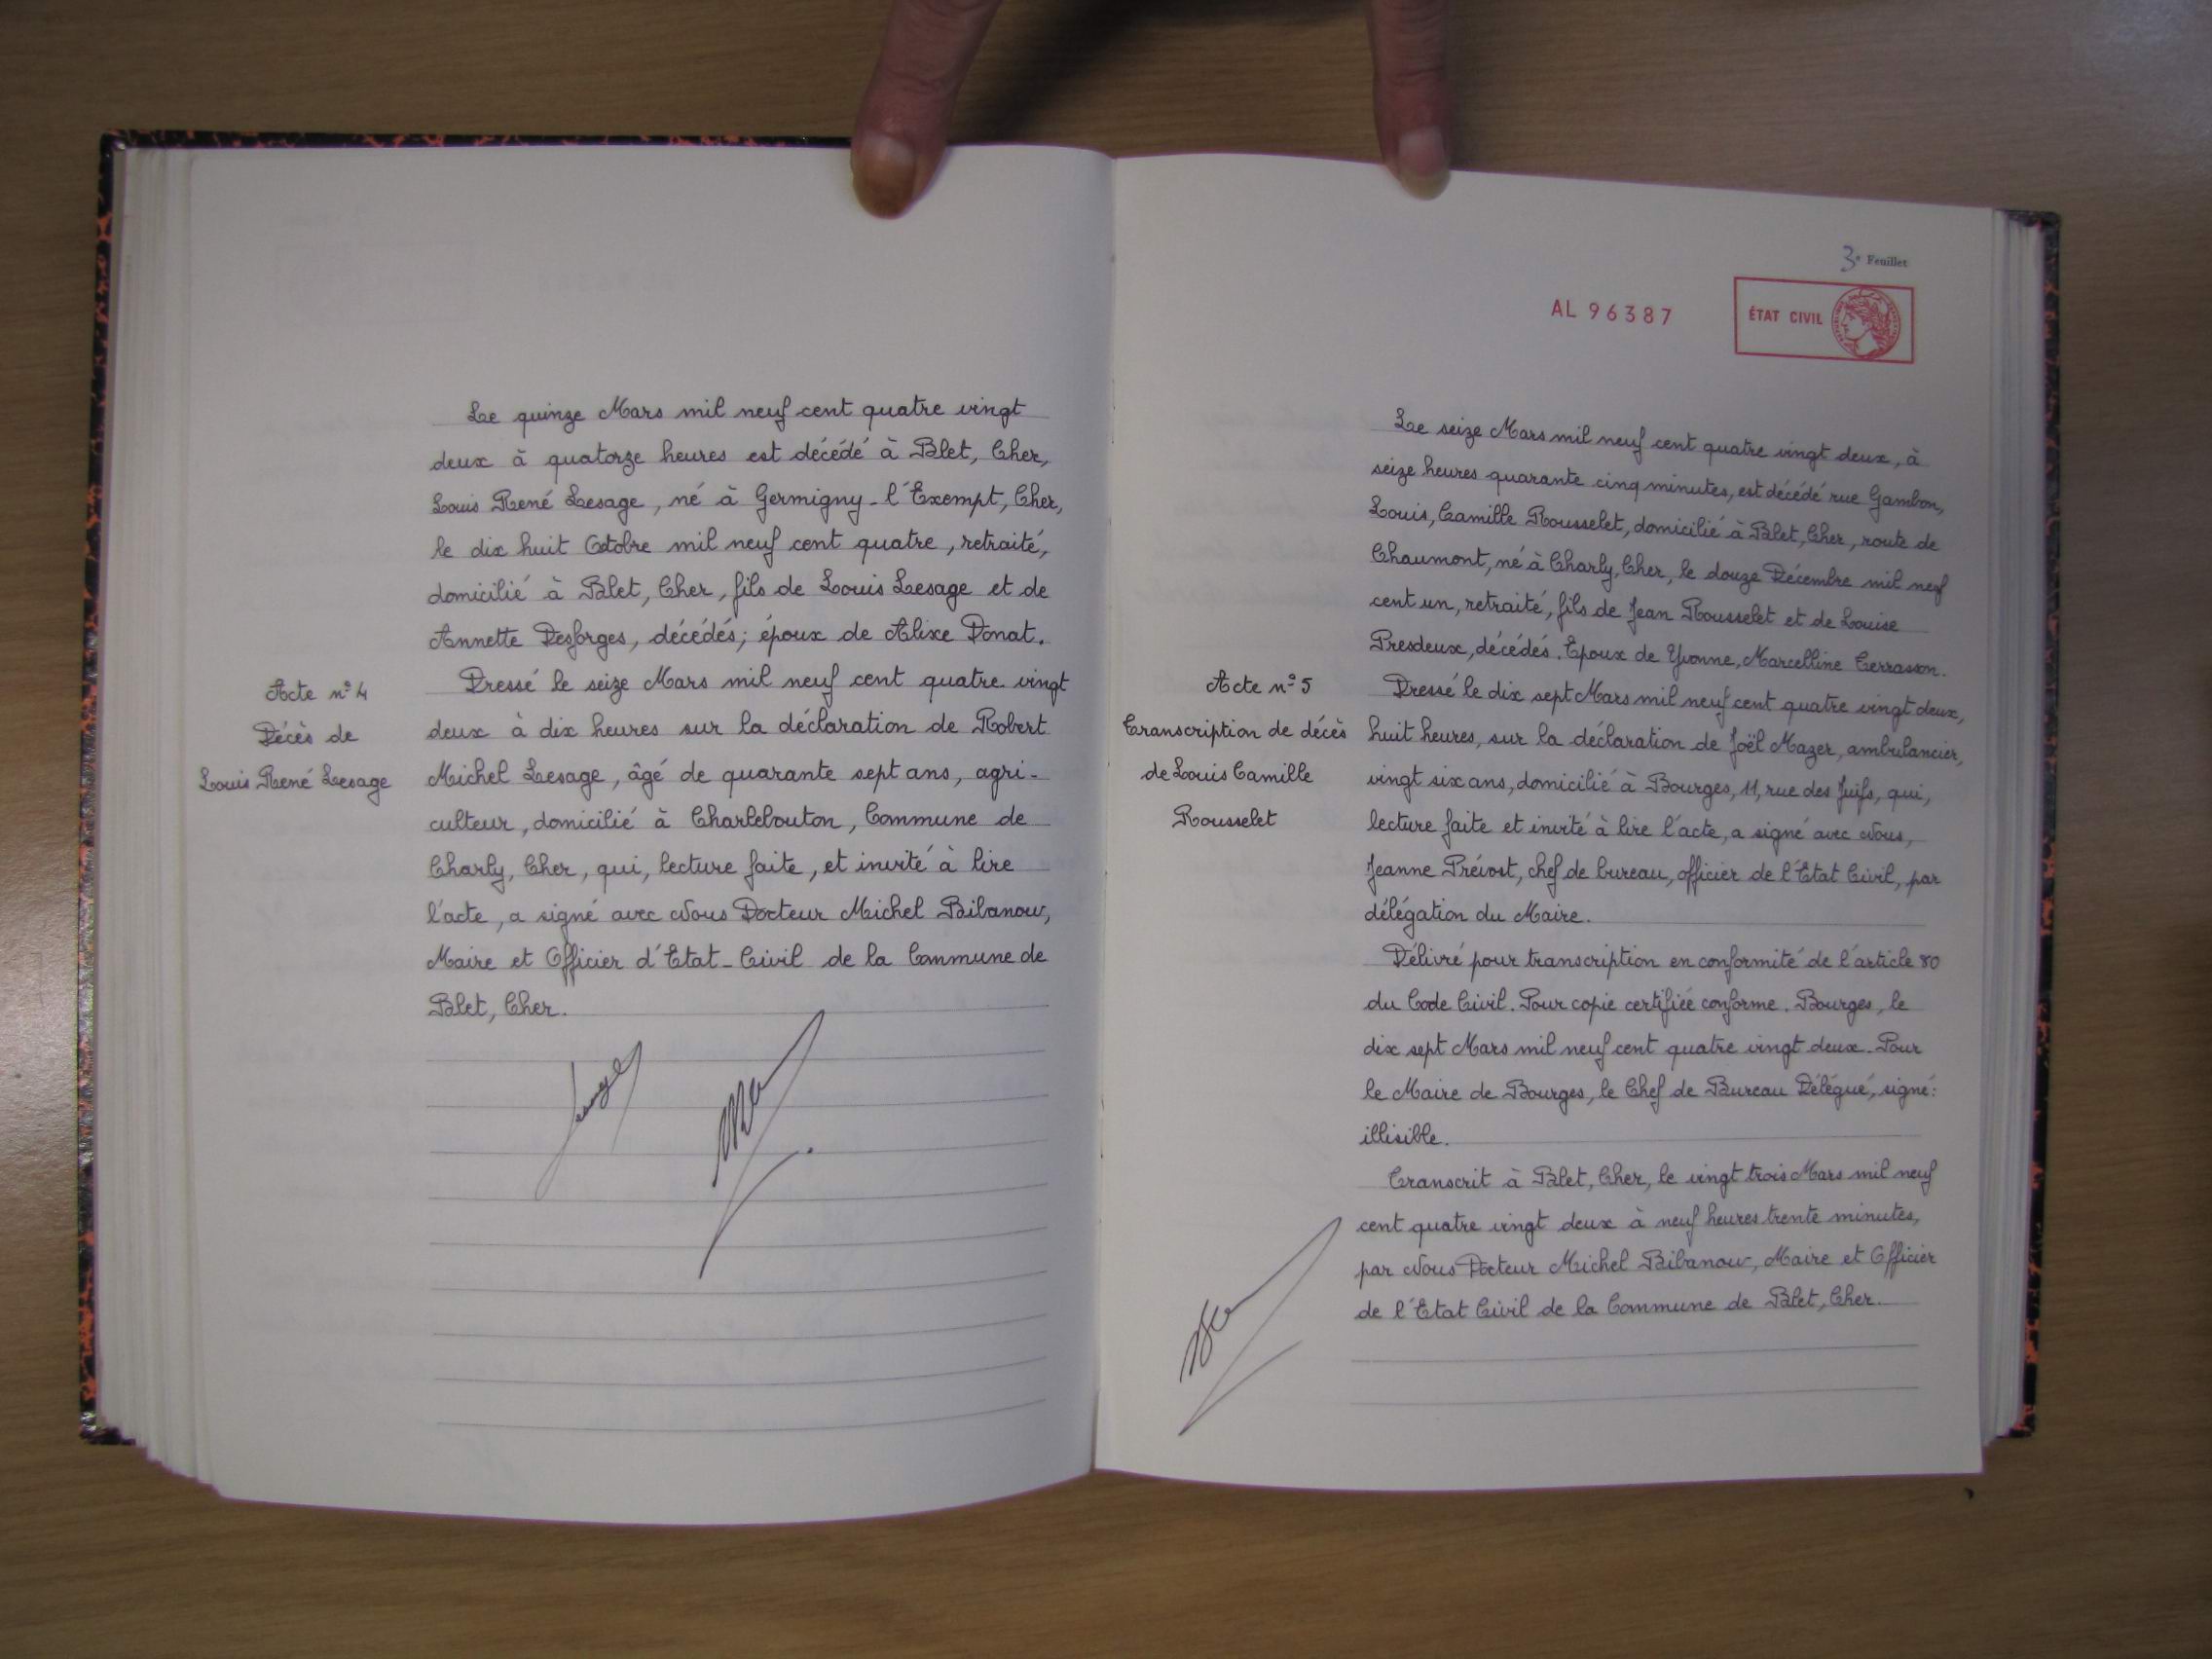 Le quinze Mars mil neuf cent quatre vingt
deux à quatorze heures est décédé à Blet, Cher,
Louis René Lesage, né à Germigny-l'Exempt, Cher,
le dix huit Octobre mil neuf cent quatre, retraité,
domicilié à Blet, Cher, fils de Louis Lesage et de
Annette Desforges, décédés; époux de Alixe Donat.
Acte n° 4
Décès de
Louis René Lesage
Dressé le seize Mars mil neuf cent quatre vingt
deux à dix heures sur la déclaration de Robert
Michel Lesage, âgé de quarante sept ans, agri-
culteur, domicilié à Charlebouton, Commune de
Charly, Cher, qui, lecture faite, et invité à lire
l'acte, a signé avec Nous Docteur Michel Bibanow,
Maire et Officier d'Etat-Civil de la Commune de
Blet, Cher.
3e Feuillet
AL 96387
ÉTAT CIVIL
Le seize Mars mil neuf cent quatre vingt deux, à
seize heures quarante cinq minutes, est décédé rue Gambon,
Louis, Camille Rousselet, domicilié à Blet, Cher, route de
Chaumont, né à Charly, Cher, le douze Décembre mil neuf
cent un, retraité, fils de Jean Rousselet et de Louise
Presdeux, décédés. Epoux de Yvonne, Marcelline Terrasson.
Acte n° 5
Transcription de décès
de Louis Camille
Rousselet
Dressé le dix sept Mars mil neuf cent quatre vingt deux,
huit heures, sur la déclaration de Joël Mazer, ambulancier,
vingt six ans, domicilié à Bourges, 11, rue des Juifs, qui,
lecture faite et invité à lire l'acte, a signé avec Nous,
Jeanne Prévost, chef de bureau, officier de l'Etat Civil, par
délégation du Maire.
Délivré pour transcription en conformité de l'article 80
du Code Civil. Pour copie certifiée conforme. Bourges, le
dix sept Mars mil neuf cent quatre vingt deux. Pour
le Maire de Bourges, le Chef de Bureau Délégué, signé:
illisible.
Transcrit à Blet, Cher, le vingt trois Mars mil neuf
cent quatre vingt deux à neuf heures trente minutes,
par Nous Docteur Michel Bibanow, Maire et Officier
de l'Etat Civil de la Commune de Blet, Cher.